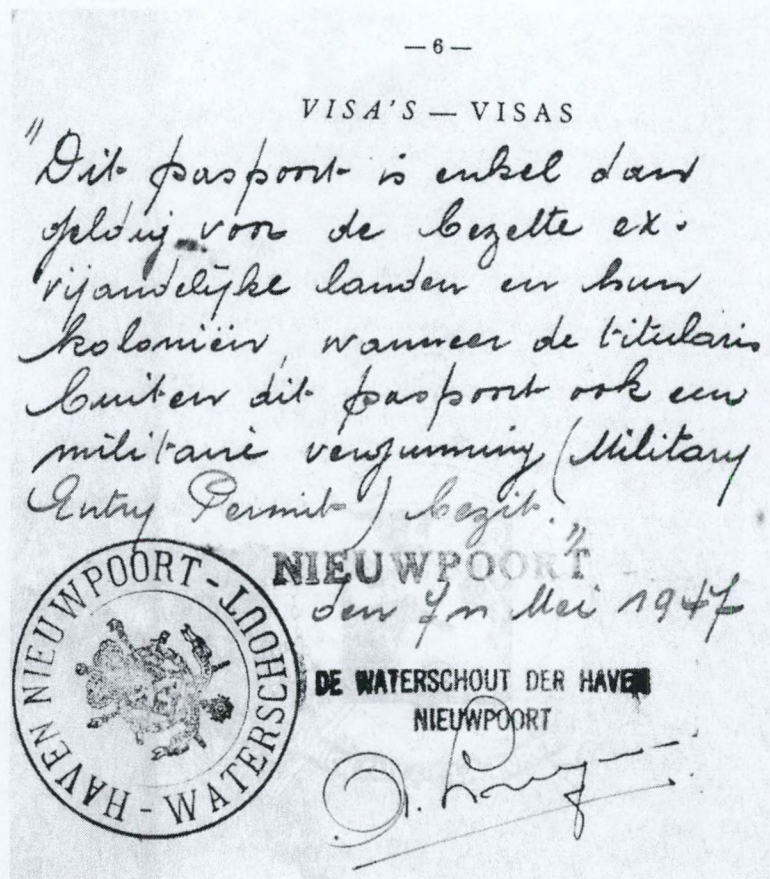 — 6 —
VISA'S — VISAS
"Dit paspoort is enkel dan
geldig voor de bezette ex-
vijandelijke landen en hun
koloniën, wanneer de titularis
buiten dit paspoort ook een
militaire vergunning (Military
Entry Permit) bezit."
NIEUWPOORT
den 7n Mei 1947
DE WATERSCHOUT DER HAVEN
NIEUWPOORT
HAVEN NIEUWPOORT - WATERSCHOUT -